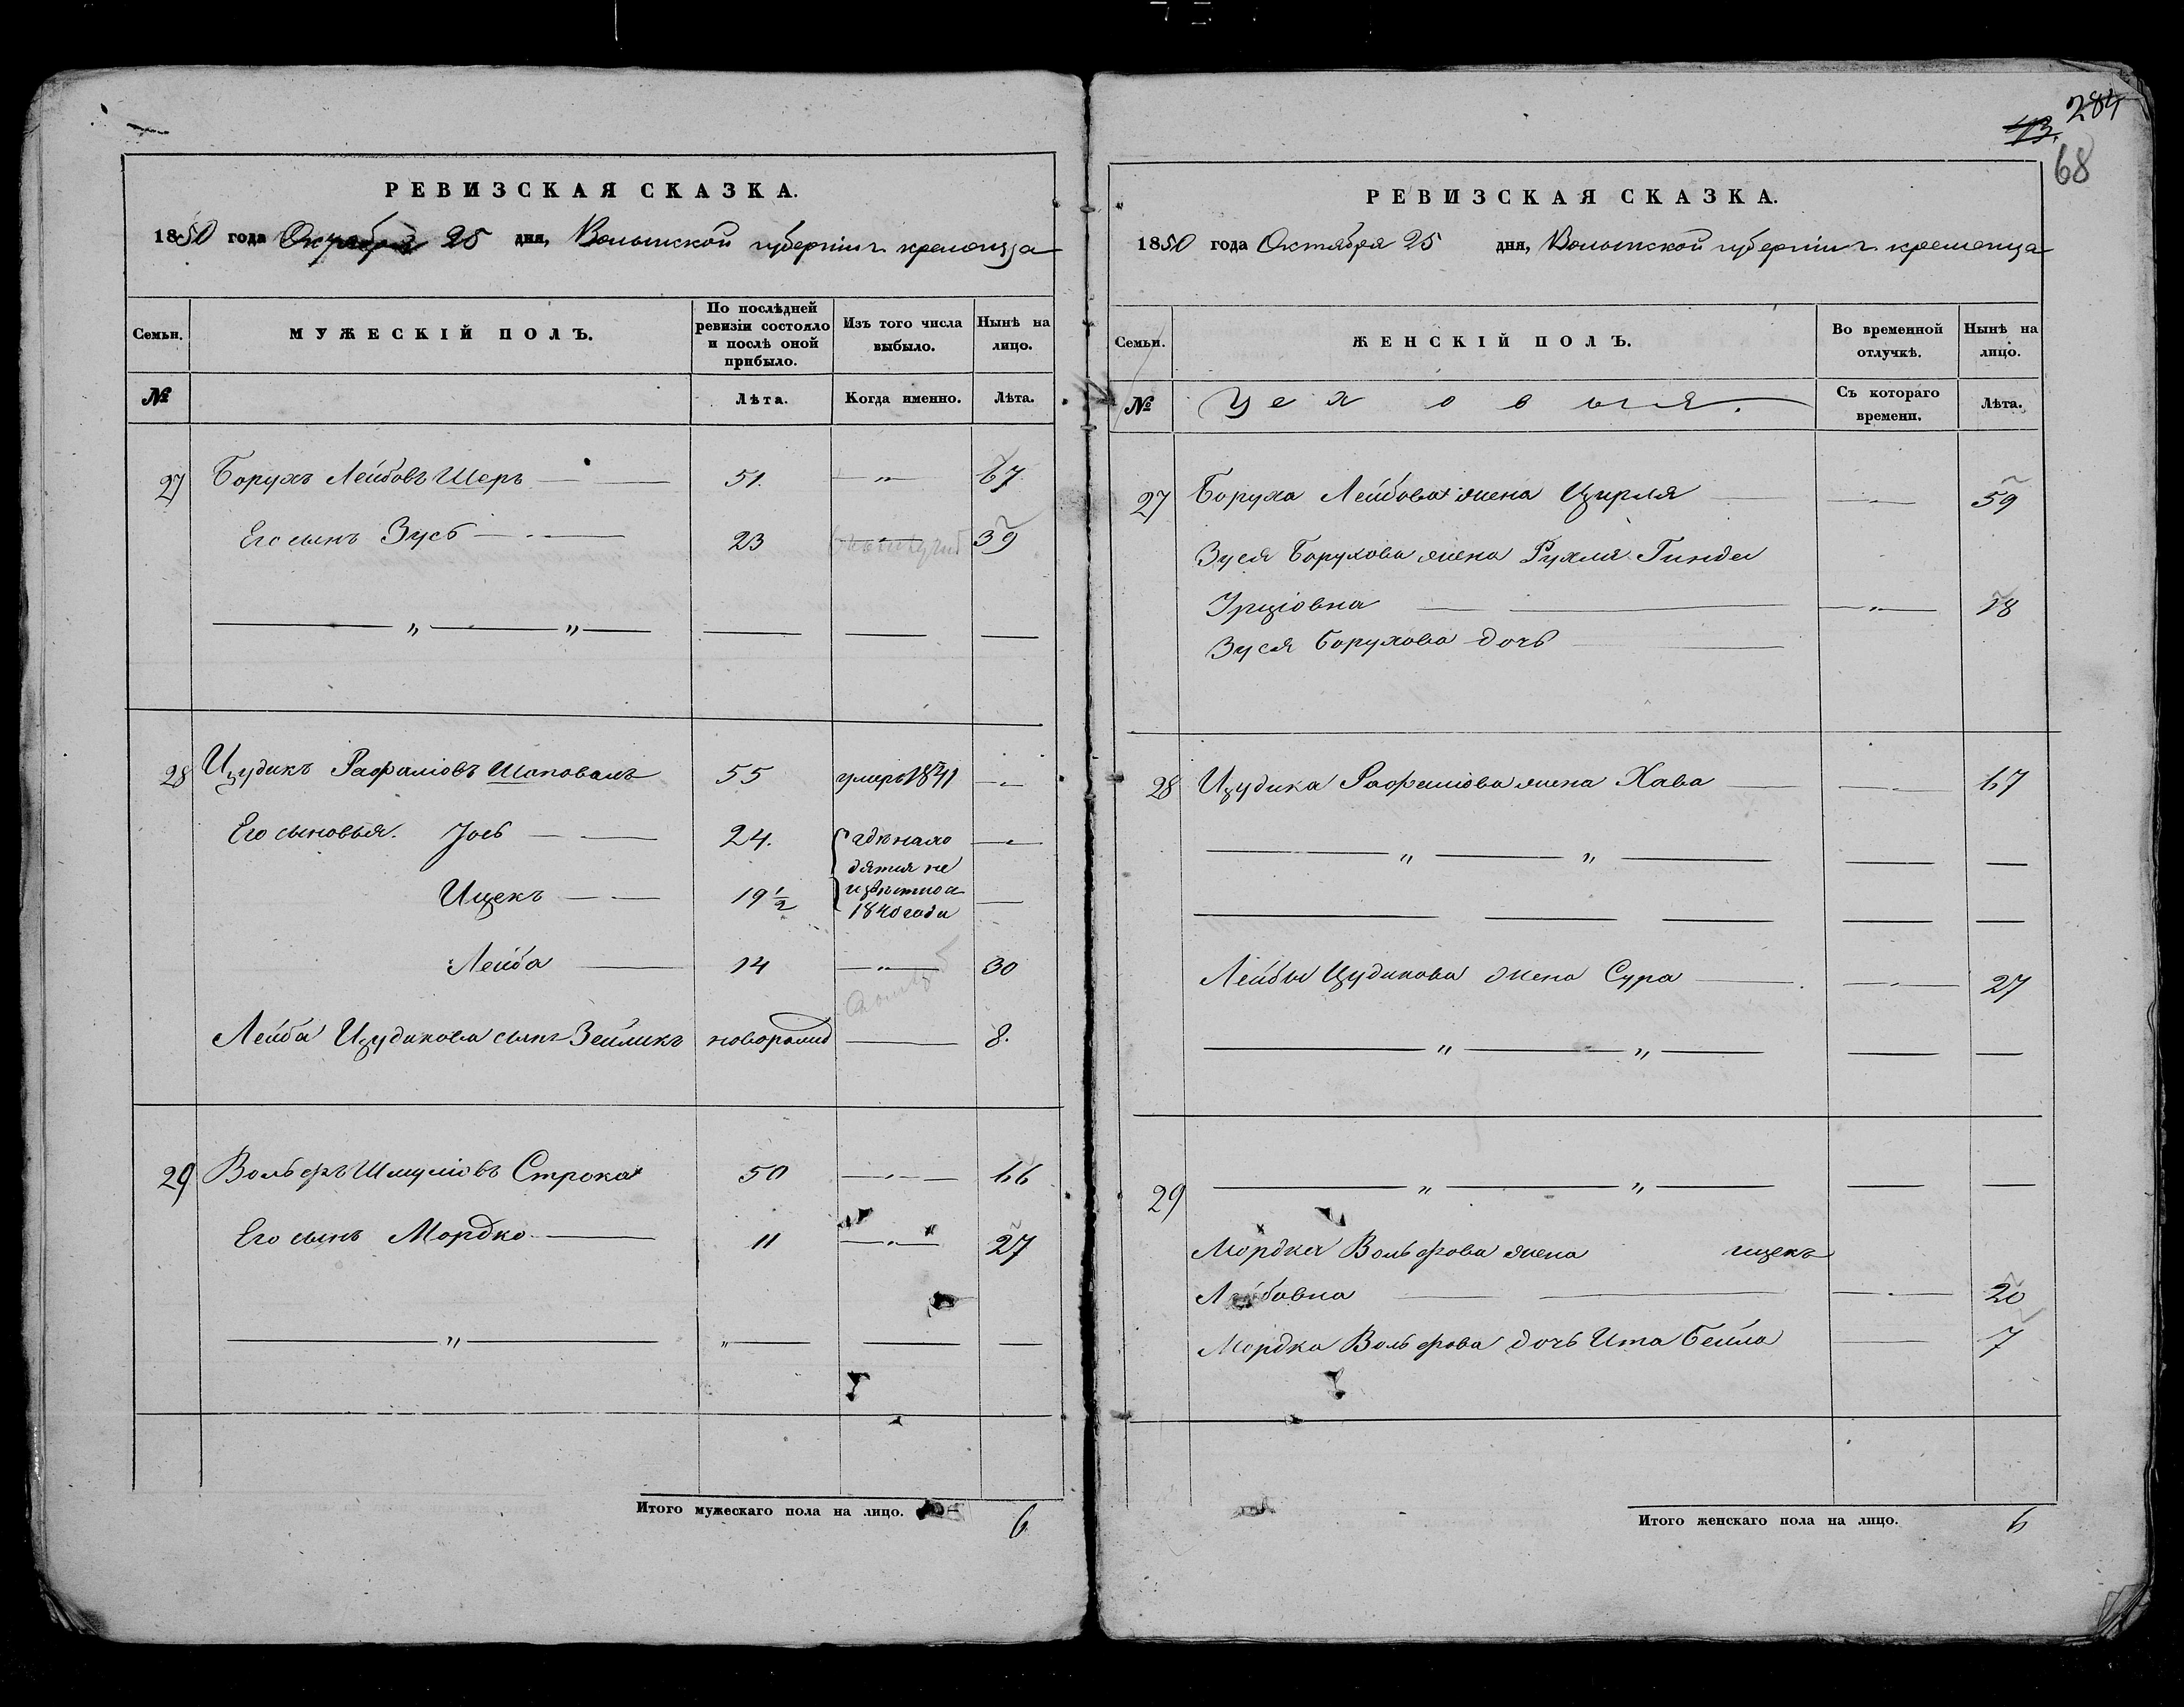 РЕВИЗСКАЯ СКАЗКА.
1850 года Октября 25 дня, Волынской губернии г. кременца
Семьи.
МУЖЕСКІЙ ПОЛЪ.
По послѣдней
ревизіи состояло
и послѣ оной
прибыло.
Изъ того числа
выбыло.
Нынѣ на
лицо.
№
Лѣта.
Когда именно.
Лѣта.
27 Борухъ Лейбовъ Шеръ 51. 67
Его сынъ Зусь 23 39
28 Изудикъ Рафаиловъ Шаповалъ 55 умеръ 1841
Его сыновья. Іось 24. гдѣ нахо
дятся не
Ицекъ 19 1/2 извѣстно с
1840 года
Лейба 14 30
Лейба Изудикова сынъ Зейликъ новорожд 8.
29 Вольфъ Шмуліовъ Строка 50 66
Его сынъ Мордко 11 27
Итого мужескаго пола на лицо. 6
284
43.
68
РЕВИЗСКАЯ СКАЗКА.
1850 года Октября 25 дня, Волынской губерніи г. кременца
Семьи.
ЖЕНСКІЙ ПОЛЪ.
Во временной
отлучкѣ.
Нынѣ на
лицо.
№
Цеховыя.
Съ котораго
времени.
Лѣта.
27 Боруха Лейбова жена Цирля 59
Зуся Борухова жена Рухля Гинда
Ірціовна 18
Зуся Борухова дочь
28 Изудика Рафаилова жена Хава 67
Лейбы Изудикова жена Сура 27
29
Мордка Вольфова жена ицекъ
Лейбовна 20
Мордка Вольфова дочь Ита Бейла 7
Итого женскаго пола на лицо. 6